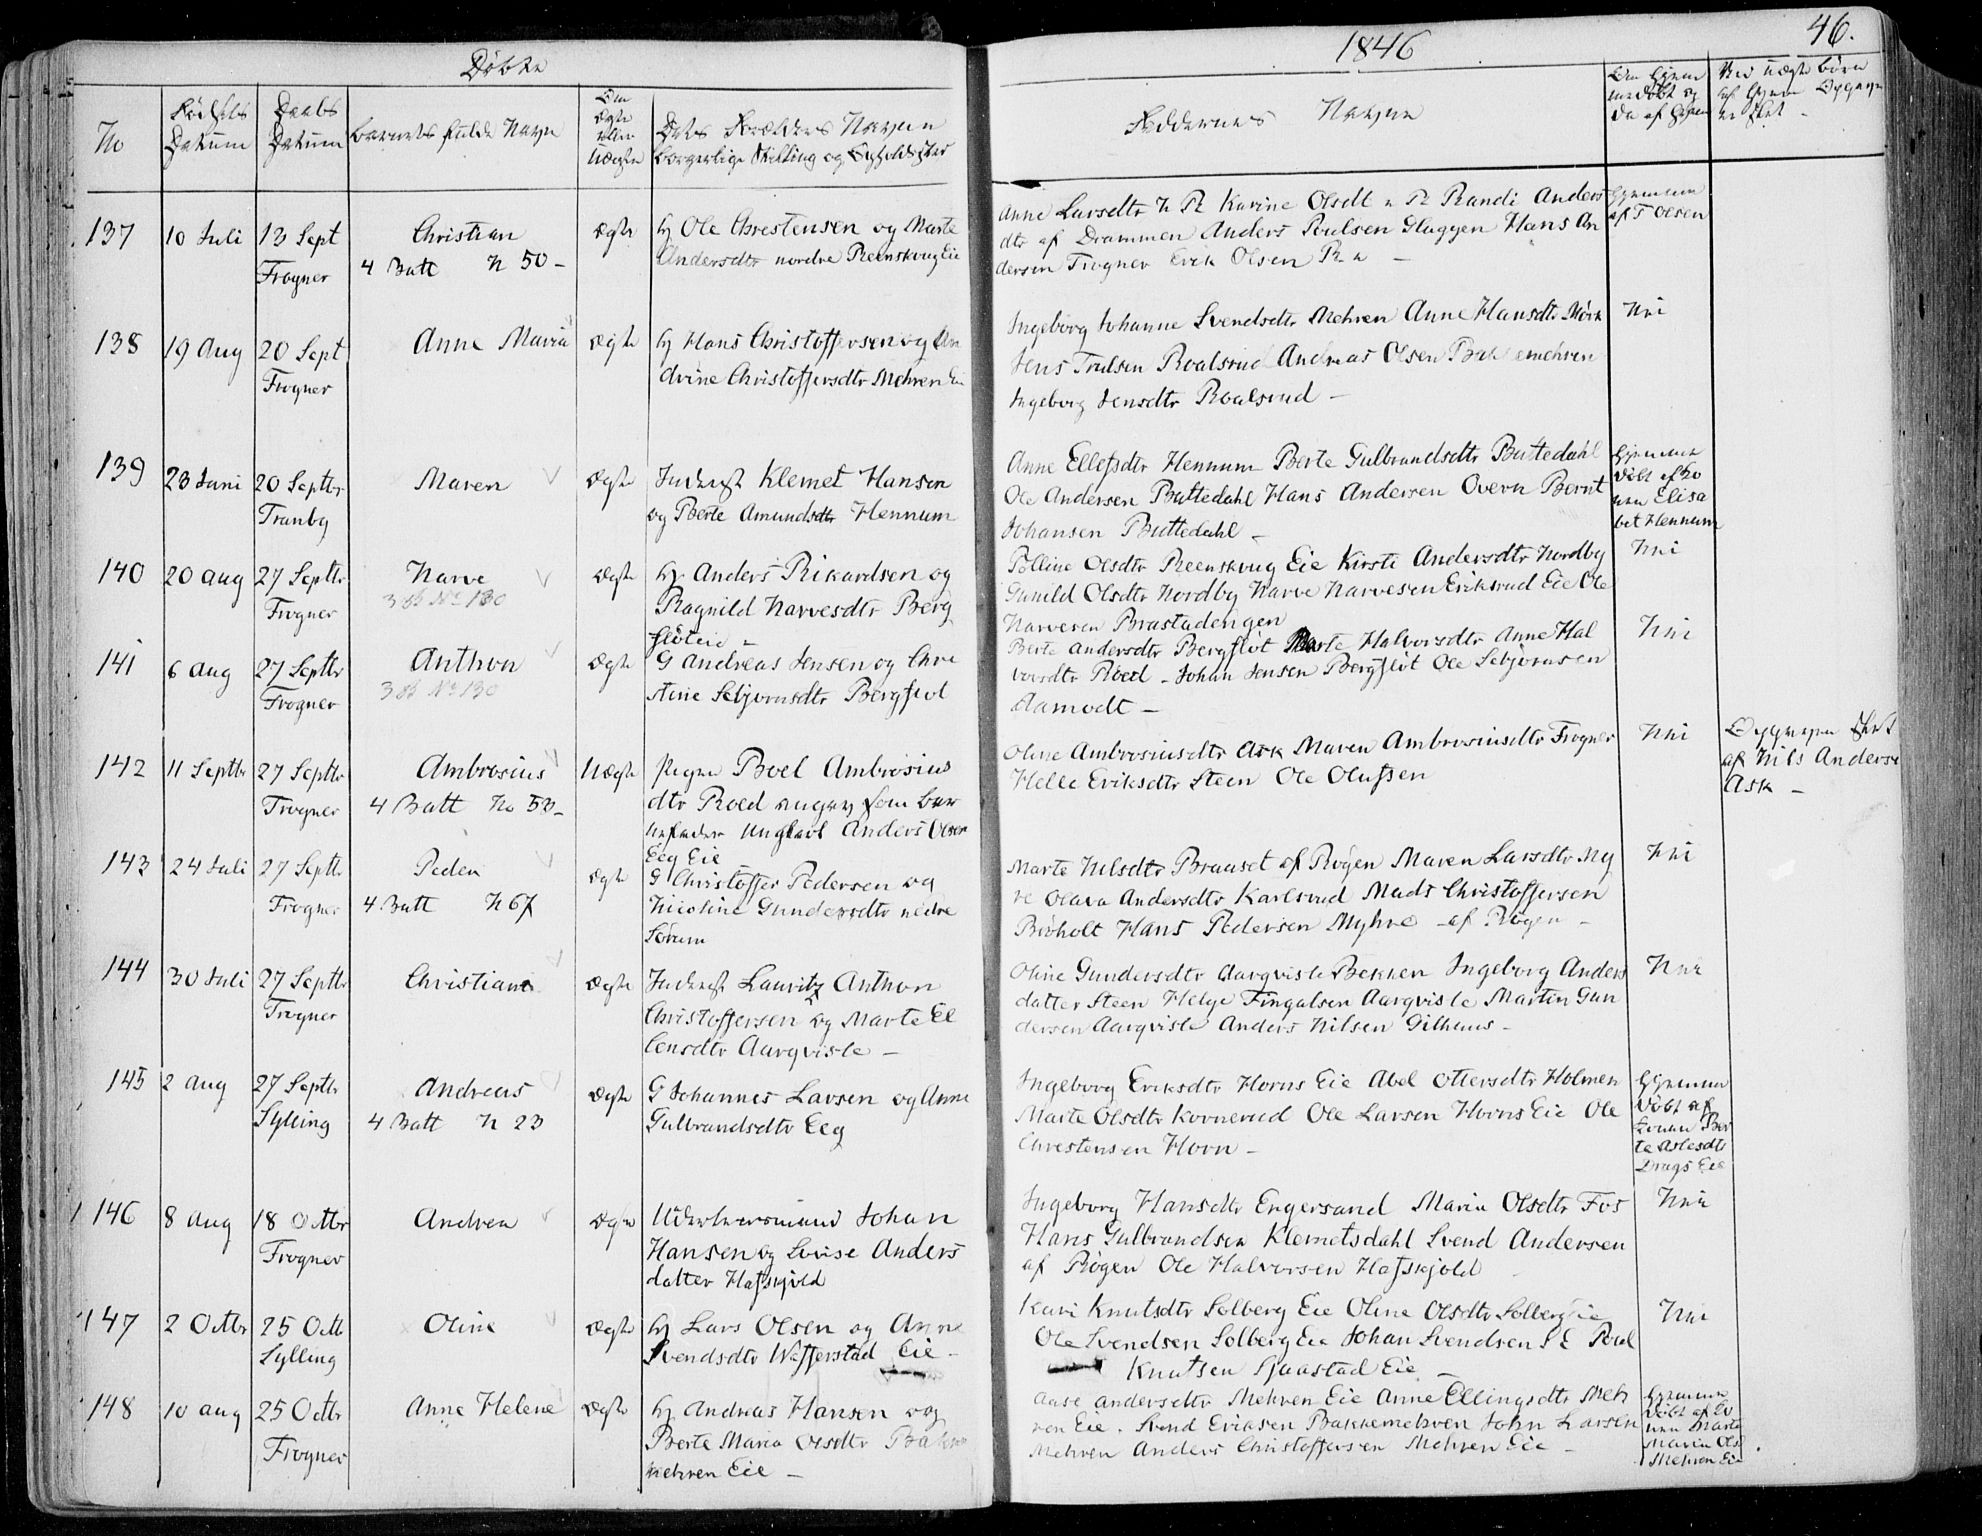 Döbte
1846
46.
No
Födsels Datum
Daabs Datum
Barnets fulde Navn
Om Ægte eller Uægte
Dets Forældres Navne
borgerlige Stilling og Opholdssted
Faddernes Navne
137
10 Juli
13 Sept
Frogner
Christian
4 Batt N 50 -
Ægte
Ole Christensen og Marte
Andersdtr nordre Reenskoug Eie
Anne Larsdtr N R Karine Olsdt n R Randi Anders
dtr af Drammen Anders Paulsen Gluggen Hans An
dersen Frogner Erik Olsen R n -
Hjemme
af T Olsen
138
19 Aug
20 Sept
Frogner
Anne Maria
Ægte
Hans Christoffersen og An
drine Christoffersdtr Mehren Eie
Ingeborg Johanne Svendsdtr Mehren Anne Hansdtr Mörk
Jens Trulsen Roalsrud Andreas Olsen Bakkemehren
Ingeborg Jensdtr Roalsrud -
Nei
139
23 Juni
20 Septbr
Tranby
Maren
Ægte
Inderst Klemet Hansen
og Berte Amundsdtr Hennum
Anne Ellefsdtr Hennum Berte Gulbrandsdtr Buttedahl
Ole Andersen Buttedahl Hans Andersen Overn Bernt
Johansen Buttedahl -
Hjemme
döbt af Ko
nen Elisa
bet Hennum
140
20 Aug
27 Septbr
Frogner
Narve
3 No 130
Ægte
Anders Rikardsen og
Ragnild Narvesdtr Berg
flöteie -
Polline Olsdtr Reenskoug Eie Kirsti Andersdtr Nordby
Gunild Olsdtr Nordby Narve Narvesen Eriksrud Eie Ole
Narvesen Brastadengen
Nei
141
6 Aug
27 Septbr
Frogner
Anthon
3 No 130
Ægte
G Andreas Jensen og Chri
stine Sebjörnsdtr Bergflöt
Berte Andersdtr Bergflöt Marte Halvorsdtr Anne Hal
vorsdtr Röed - Johan Jensen Bergflöt Ole Sebjörnsen
Aamodt -
Nei
142
11 Septbr
27 Septbr
Frogner
Ambrosius
4 Batt No 53 -
Uægte
Pigen Boel Ambrosius
dtr Röed angav som bar
nefader Ungkarl Anders Olsen
Eeg Eie
Oline Ambrosiusdtr Ask Maren Ambrosiusdtr Frogner
Helle Eriksdtr Steen Ole Olufsen
Nei
Opgaven sket
af Nils Anderse
Ask -
143
24 Juli
27 Septbr
Frogner
Peder
4 Batt N 67
Ægte
G Christoffer Pedersen og
Nicoline Gundersdtr nedre
Sörum
Marte Nilsdtr Brauset af Rögen Maren Larsdtr My
re Olava Andersdtr Karlsrud Mads Christoffersen
Böholt Hans Pedersen Myhre af Rögen -
Nei
144
30 Juli
27 Septbr
Frogner
Christiane
Ægte
Inderst Lauritz Anthon
Christoffersen og Marte El
lensdtr Aarqvisle -
Oline Gundersdtr Aarqvisle Bekken Ingeborg Anders
datter Steen Helge Fingalsen Aarqvisle Martin Gun
dersen Aarqvisle Anders Nilsen Gilhuus -
Nei
145
2 Aug
27 Septbr
Sylling
Andreas
4 Batt N 23
Ægte
G Johannes Larsen og Anne
Gulbrandsdtr Eeg
Ingeborg Eriksdtr Horns Eie Abel Ottersdtr Holmen
Marte Olsdtr Kornerud Ole Larsen Horns Eie Ole
Christensen Horn -
Hjemme
döbt af
Konen Ber
te Aslesdtr
Drags Eie
146
8 Aug
18 Octbr
Frogner
Andrea
Ægte
Johan
Hansen og Lovise Anders
datter Hafskjold
Ingeborg Hansdtr Engersand Maria Olsdtr Fos
Hans Gulbrandsen Klemetsdahl Svend Andersen
af Rögen Ole Halvorsen Hafskjold
Nei
147
2 Octbr
25 Octb
Sylling
Oline
Ægte
Lars Olsen og Anne
Svendsdtr Wefferstad Eie -
Kari Knutsdtr Solberg Eie Oline Olsdtr Solberg Eie
Ole Svendsen Solberg Eie Johan Svendsen S E Poul
Knutsen Sjaastad Eie -
Nei
148
10 Aug
25 Octbr
Frogner
Anne Helene
Ægte
Andreas Hansen og
Berte Maria Olsdtr Bakke
mehren Eie -
Aase Andersdtr Mehren Eie Anne Ellingsdtr Meh
ren Eie. Svend Eriksen Bakkemehren John Larsen
Mehren Anders Christoffersen Mehren Eie -
Hjemme
döbt af Ko
nen Marte
Maria Ols
Mehren Eie